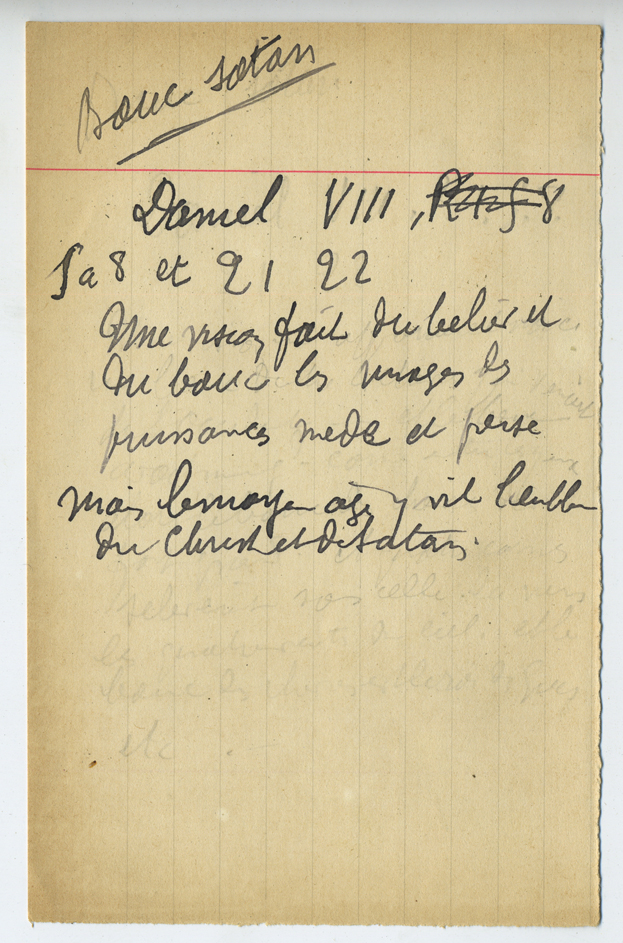 Bouc Satan
Daniel VIII, 8
5 a 8 et 21 22
Une vision fait du belier et
du bouc les images des
puissances mede et perse
mais le moyen age y vit l'embleme
du Christ et de Satan.
etc.